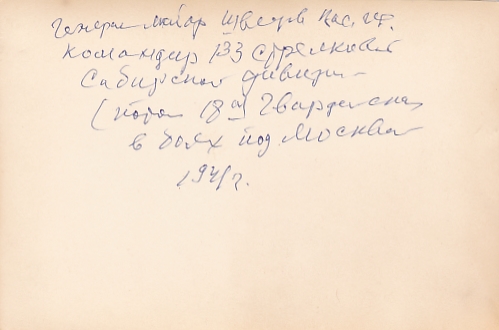 Генерал майор Швецов Вас. Ив.
Командир 133 стрелковой
Сибирской дивизии
(потом 18ая Гвардейская
в боях под Москвой
1941 г.